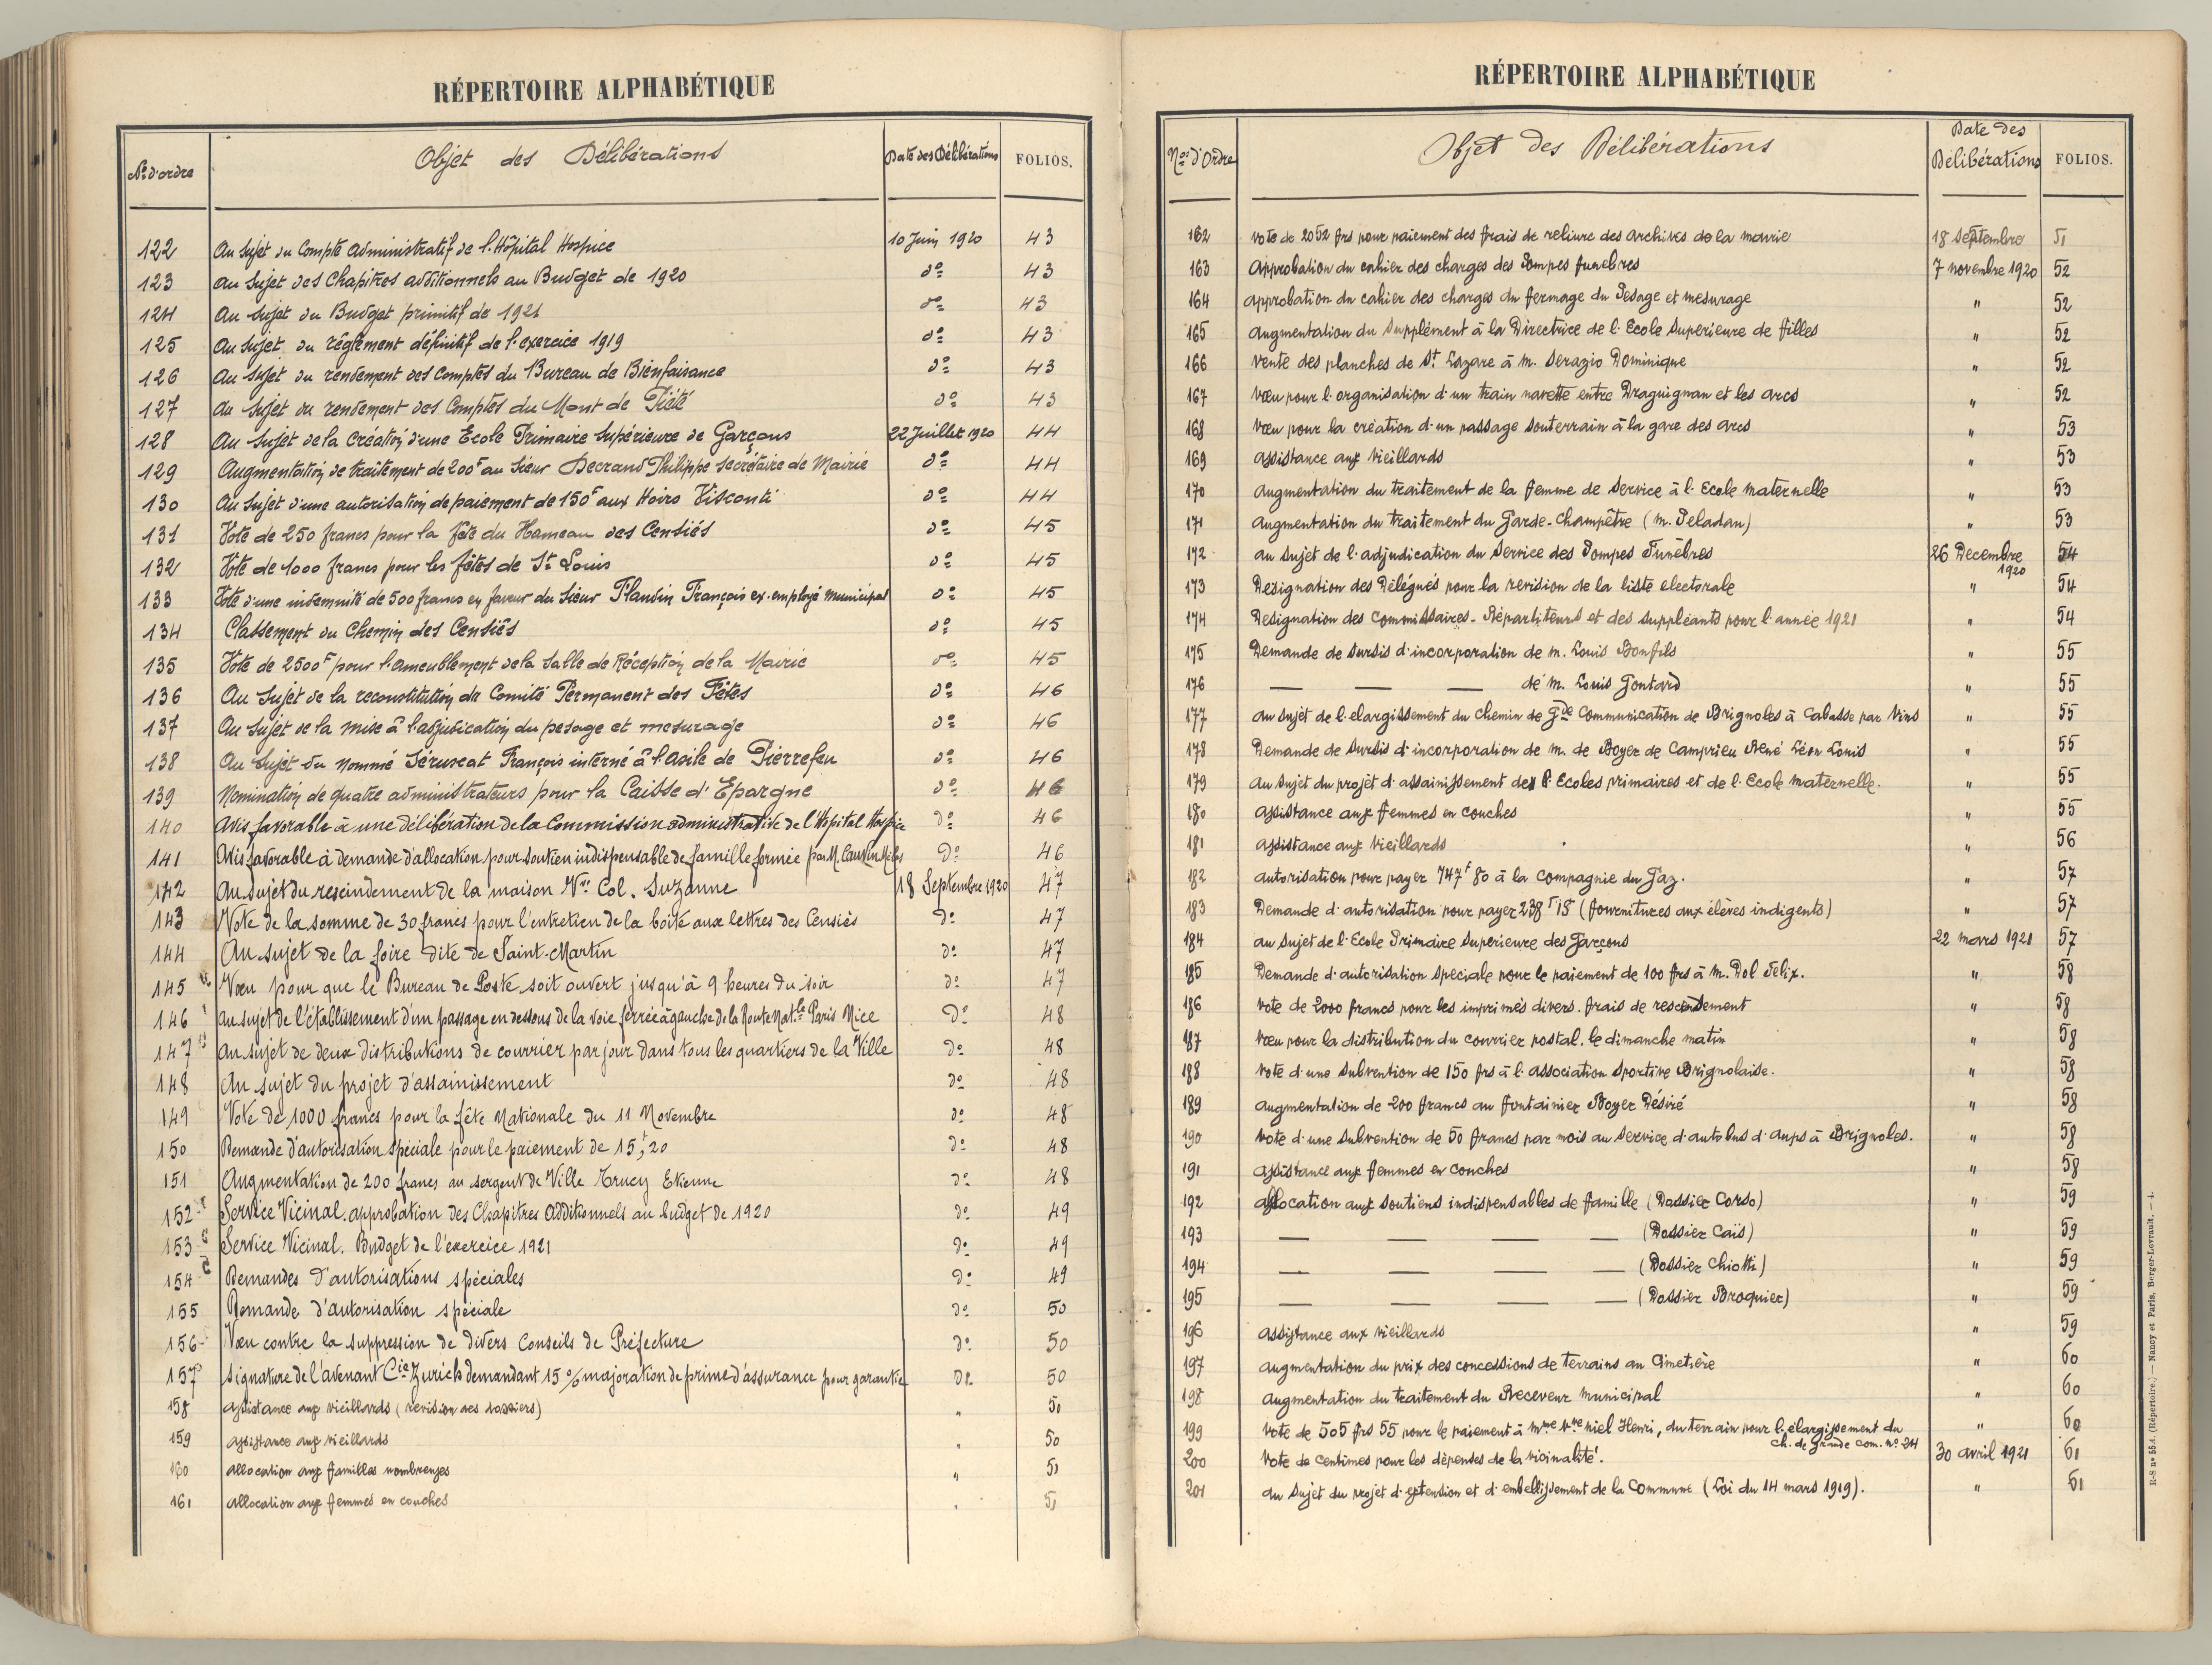 RÉPERTOIRE ALPHABÉTIQUE
Nº d'ordre Objet des Délibérations Date des Délibérations FOLIOS.
122 Au Sujet du Compte administratif de l'Hôpital Hospice 10 Juin 1920 43
123 Au Sujet des Chapitres additionnels au Budget de 1920 dº 43
124 Au Sujet du Budget primitif de 1921 dº 43
125 Au Sujet du règlement définitif de l'exercice 1919 dº 43
126 Au Sujet du rendement des Comptes du Bureau de Bienfaisance dº 43
127 Au Sujet du rendement des Comptes du Mont de Piété dº 43
128 Au Sujet de la Création d'une Ecole Primaire Supérieure de Garçons 22 Juillet 1920 44
129 Augmentation de traitement de 200f au Sieur Decrand Philippe Secrétaire de Mairie dº 44
130 Au Sujet d'une autorisation de paiement de 150f aux Hoirs Visconti dº 44
131 Vote de 250 francs pour la fête du Hameau des Censiés dº 45
132 Vote de 1000 francs pour les fêtes de St Louis dº 45
133 Vote d'une indemnité de 500 francs en faveur du Sieur Flandin François ex-employé Municipal dº 45
134 Classement du Chemin des Censiés dº 45
135 Vote de 2500f pour l'ameublement de la Salle de Réception de la Mairie dº 45
136 Au Sujet de la reconstitution du Comité Permanent des Fêtes dº 46
137 Au Sujet de la mise à l'adjudication du pesage et mesurage dº 46
138 Au Sujet du nommé François interné à l'asile de Pierrefeu dº 46
139 Nomination de quatre administrateurs pour la Caisse d'Epargne dº 46
140 Avis favorable à une délibération de la Commission administrative de l'Hôpital Hospice dº 46
141 Avis favorable à demande d'allocation pour soutien indispensable de famille formée par M. Cauvin dº 46
142 Au sujet du rescindement de la maison Vve Col. Suzanne 18 Septembre 1920 47
143 Vote de la somme de 30 francs pour l'entretien de la boîte aux lettres des Censiés dº 47
144 Au sujet de la foire dite de Saint-Martin dº 47
145 Vœu pour que le Bureau de Poste soit ouvert jusqu'à 9 heures du soir dº 47
146 Au sujet de l'établissement d'un passage en dessous de la voie ferrée à gauche de la Route Nat.le Paris Nice dº 48
147 Au sujet de deux distributions de courrier par jour dans tous les quartiers de la Ville dº 48
148 Au sujet du projet d'assainissement dº 48
149 Vote de 1000 francs pour la fête Nationale du 11 Novembre dº 48
150 Demande d'autorisation spéciale pour le paiement de 15f,20 dº 48
151 Augmentation de 200 francs au sergent de Ville Trucy Etienne dº 48
152 Service Vicinal. approbation des Chapitres Additionnels au budget de 1920 dº 49
153 Service Vicinal. Budget de l'exercice 1921 dº 49
154 Demandes d'autorisations spéciales dº 49
155 Demande d'autorisation spéciale dº 50
156 Vœu contre la suppression de divers Conseils de Préfecture dº 50
157 Signature de l'avenant Cie Zurich demandant 15 % majoration de prime d'assurance pour garantie dº 50
158 Assistance aux vieillards (revision des dossiers) " 50
159 Assistance aux vieillards " 50
160 Allocation aux familles nombreuses " 51
161 Allocation aux femmes en couches " 51
RÉPERTOIRE ALPHABÉTIQUE
Nos d'Ordre Objet des Délibérations Date des Délibérations FOLIOS.
162 Vote de 2052 frs pour paiement des frais de reliure des archives de la mairie 18 Septembre 51
163 Approbation du cahier des charges des Pompes funebres 7 novembre 1920 52
164 approbation du cahier des charges du fermage du Pesage et mesurage " 52
165 augmentation du Supplément à la Directrice de l'Ecole Superieure de filles " 52
166 Vente des planches de St. Lazare à m. Serazio Dominique " 52
167 Vœu pour l'organisation d'un train navette entre Draguignan et les arcs " 52
168 Vœu pour la création d'un passage souterrain à la gare des arcs " 53
169 assistance aux Vieillards " 53
170 augmentation du traitement de la femme de Service à l'Ecole maternelle " 53
171 augmentation du traitement du Garde-Champêtre (m. Peladan) " 53
172 au Sujet de l'adjudication du Service des Pompes Funèbres 26 Decembre 1920 54
173 Designation des Délégués pour la revision de la liste electorale " 54
174 Designation des Commissaires-Répartiteurs et des suppléants pour l'année 1921 " 54
175 Demande de Sursis d'incorporation de m. Louis Bonfils " 55
176 — — — de m. Louis Gontard " 55
177 au sujet de l'elargissement du chemin de Gde Communication de Brignoles à Cabasse par Vins " 55
178 Demande de Sursis d'incorporation de m. de Boyer de Camprieu René Léon Louis " 55
179 au Sujet du projèt d'assainissement des Ecoles primaires et de l'Ecole maternelle. " 55
180 assistance aux femmes en couches " 55
181 assistance aux Vieillards " 56
182 autorisation pour payer 747f 80 à la Compagnie du Gaz. " 57
183 Demande d'autorisation pour payer 238f 15 (fournitures aux élèves indigents) " 57
184 au Sujet de l'Ecole Primaire Superieure des Garçons 22 mars 1921 57
185 Demande d'autorisation speciale pour le paiement de 100 frs à M. Dol Felix. " 58
186 Vote de 2000 francs pour les imprimés divers. frais de rescensement " 58
187 Vœu pour la distribution du courrier postal. le dimanche matin " 58
188 Vote d'une Subvention de 150 frs à l'association Sportive Brignolaise. " 58
189 augmentation de 200 francs au fontainier Boyer Désiré " 58
190 Vote d'une Subvention de 50 francs par mois au Service d'autobus d'aups à Brignoles. " 58
191 assistance aux femmes en couches " 58
192 allocation aux soutiens indispensables de famille (Dossier Corso) " 59
193 — — — — (Dossier Caïs) " 59
194 — — — — (Dossier Chiotti) " 59
195 — — — — (Dossier Broquier) " 59
196 assistance aux vieillards " 59
197 augmentation du prix des concessions de terrains au Cimetière " 60
198 augmentation du traitement du Receveur municipal " 60
199 Vote de 505 frs 55 pour le paiement à Mme Vve niel Henri, du terrain pour l'élargissement du " 60
ch. de grande com. nº 24
200 Vote de centimes pour les dépenses de la vicinalité. 30 avril 1921 61
201 au Sujet du projet d'extension et d'embellissement de la Commune (Loi du 14 mars 1919). " 61
R-S nº 55 A. (Répertoire.) — Nancy et Paris, Berger-Levrault. — 4.